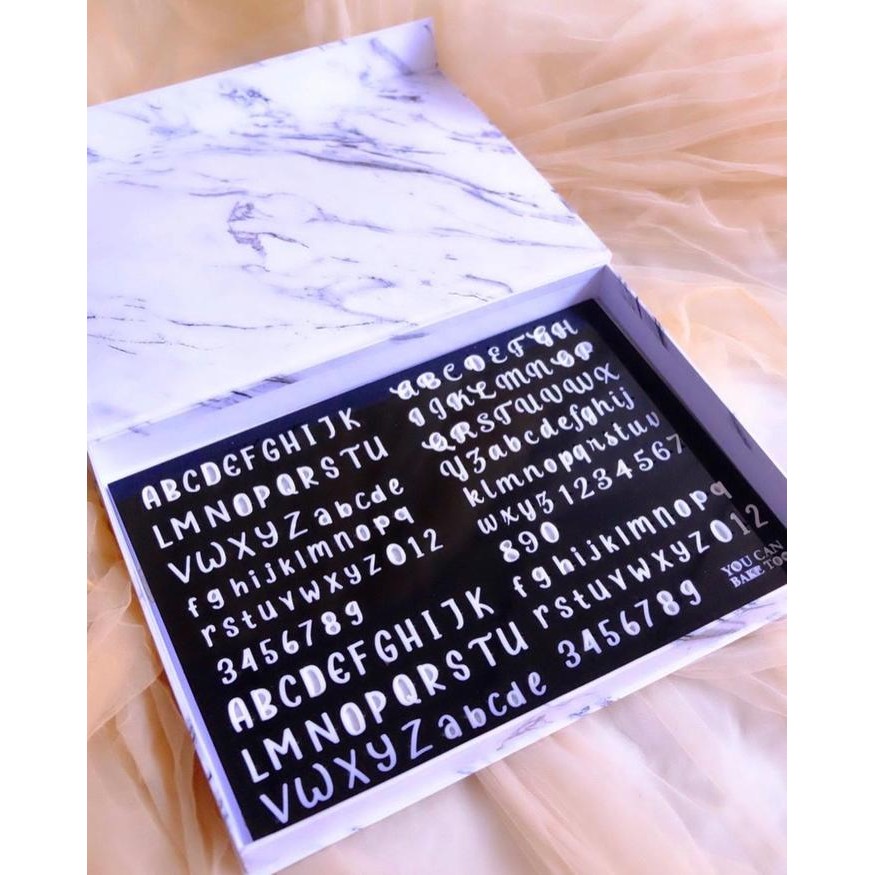 ABCDEFGHIJK
LMNOPQRSTU
VWXYZabcde
fghijklmnopq
rstuvwxyz012
3456789
ABCDEFGH
IJKLMNOP
QRSTUVWX
YZabcdefghij
klmnopqrstuv
wxyz1234567
890
ABCDEFGHIJK
LMNOPQRSTU
VWXYZabcde
fghijklmnopq
rstuvwxyz012
3456789
YOU CAN
BAKE TOO